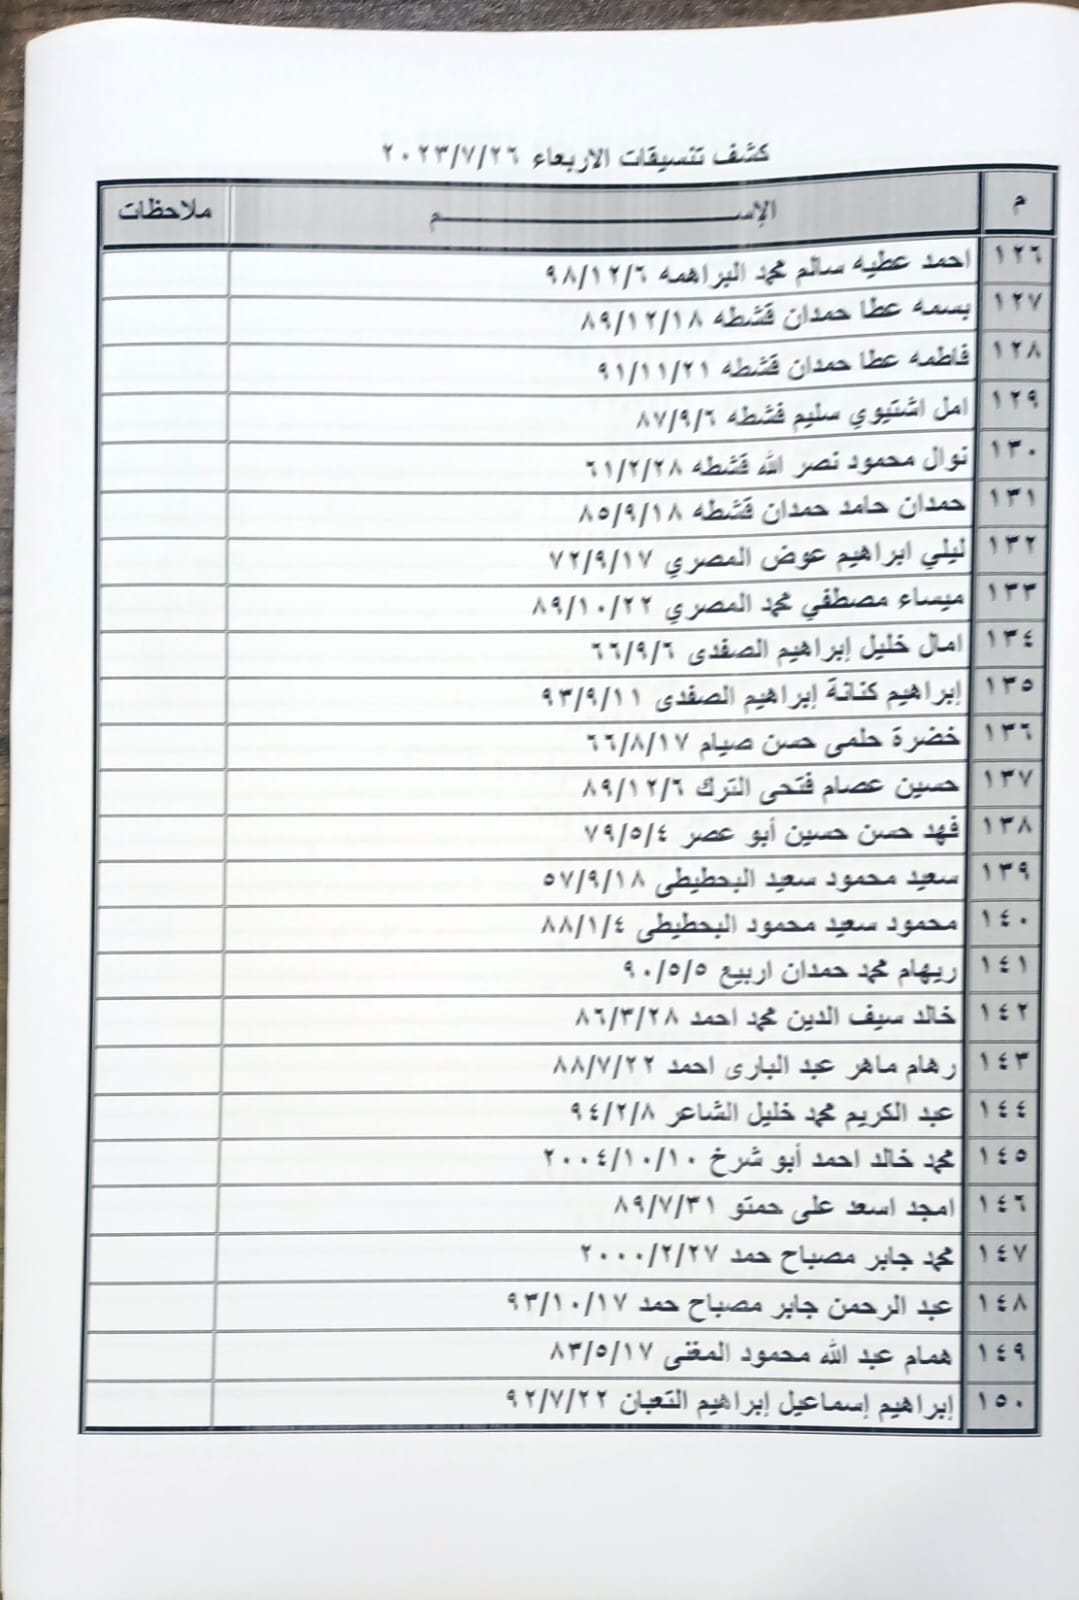 كشف تنسيقات الاربعاء ٢٠٢٣/٧/٢٦
م الإســـــــم ملاحظات
١٢٦ احمد عطيه سالم محمد البراهمه ٩٨/١٢/٦
١٢٧ بسمه عطا حمدان قشطه ٨٩/١٢/١٨
١٢٨ فاطمه عطا حمدان قشطه ٩١/١١/٢١
١٢٩ امل اشتيوي سليم قشطه ٨٧/٩/٦
١٣٠ نوال محمود نصر الله قشطه ٦١/٢/٢٨
١٣١ حمدان حامد حمدان قشطه ٨٥/٩/١٨
١٣٢ ليلي ابراهيم عوض المصري ٧٢/٩/١٧
١٣٣ ميساء مصطفي محمد المصري ٨٩/١٠/٢٢
١٣٤ امال خليل إبراهيم الصفدى ٦٦/٩/٦
١٣٥ إبراهيم كنانة إبراهيم الصفدى ٩٣/٩/١١
١٣٦ خضرة حلمى حسن صيام ٦٦/٨/١٧
١٣٧ حسين عصام فتحى الترك ٨٩/١٢/٦
١٣٨ فهد حسن حسين أبو عصر ٧٩/٥/٤
١٣٩ سعيد محمود سعيد البحطيطى ٥٧/٩/١٨
١٤٠ محمود سعيد محمود البحطيطى ٨٨/١/٤
١٤١ ريهام محمد حمدان اربيع ٩٠/٥/٥
١٤٢ خالد سيف الدين محمد احمد ٨٦/٣/٢٨
١٤٣ رهام ماهر عبد البارى احمد ٨٨/٧/٢٢
١٤٤ عبد الكريم محمد خليل الشاعر ٩٤/٢/٨
١٤٥ محمد خالد احمد أبو شرخ ٢٠٠٤/١٠/١٠
١٤٦ امجد اسعد على حمتو ٨٩/٧/٣١
١٤٧ محمد جابر مصباح حمد ٢٠٠٠/٢/٢٧
١٤٨ عبد الرحمن جابر مصباح حمد ٩٣/١٠/١٧
١٤٩ همام عبد الله محمود المغنى ٨٣/٥/١٧
١٥٠ إبراهيم إسماعيل إبراهيم التعبان ٩٢/٧/٢٢